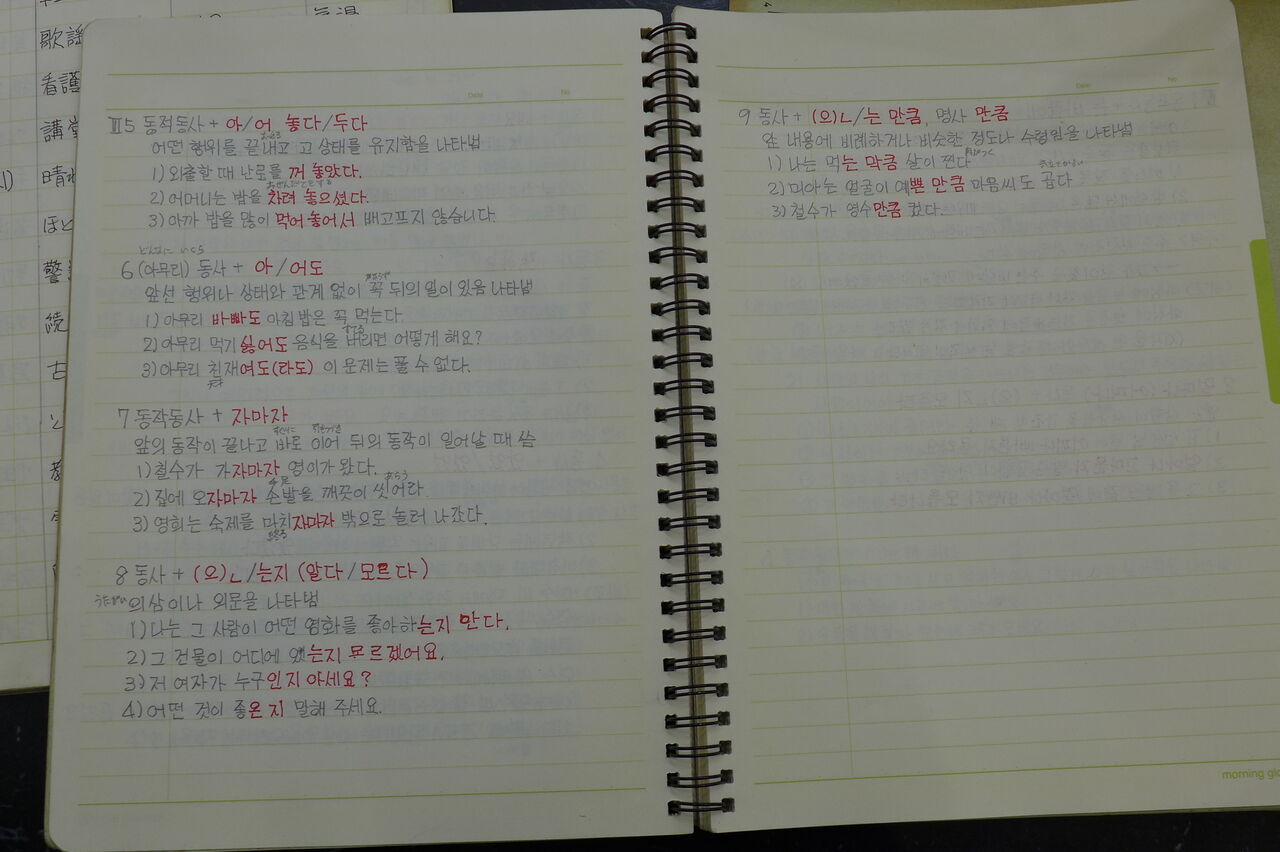 歌謡
看護
講堂
晴れ
ほと
警
続
古
Date No
Ⅲ5 동적동사 + 아/어 놓다/두다
어떤 행위를 끝내고 고 상태를 유지함을 나타냄
1) 외출할 때 난로를 꺼 놓았다.
2) 어머니는 밥을 차려 놓으셨다.
3) 아까 밥을 많이 먹어 놓어서 배고프지 않습니다.
どんなに いくら
6 (아무리) 동사 + 아/어도
앞선 행위나 상태와 관계 없이 꼭 뒤의 일이 있음 나타냄
1) 아무리 바빠도 아침 밥은 꼭 먹는다.
2) 아무리 먹기 싫어도 음식을 버리면 어떻게 해요?
3) 아무리 천재여도(라도) 이 문제는 풀 수 없다.
7 동작동사 + 자마자
앞의 동작이 끝나고 바로 이어 뒤의 동작이 일어날 때 씀
1) 철수가 가자마자 영이가 왔다.
手足
2) 집에 오자마자 손발을 깨끗이 씻어라.
3) 영희는 숙제를 마치자마자 밖으로 놀러 나갔다.
終る
8 동사 + (으)ㄴ/는지 (알다/모르다)
うたがい 의심이나 의문을 나타냄
1) 나는 그 사람이 어떤 영화를 좋아하는지 안다.
2) 그 건물이 어디에 있는지 모르겠어요.
3) 저 여자가 누구인지 아세요?
4) 어떤 것이 좋은지 말해 주세요.
Date No
9 동사 + (으)ㄴ/는 만큼, 명사 만큼
앞 내용에 비례하거나 비슷한 정도나 수량임을 나타냄
1) 나는 먹는 만큼 살이 찐다
2) 미아는 얼굴이 예쁜 만큼 마음씨도 곱다
3) 철수가 영수만큼 컸다.
morning glo